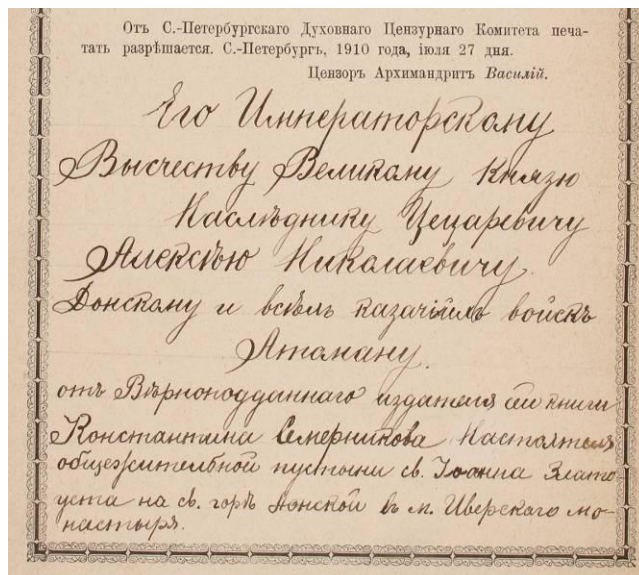 Отъ С.-Петербургскаго Духовнаго Цензурнаго Комитета печа-
тать разрѣшается. С.-Петербургъ, 1910 года, іюля 27 дня.
Цензоръ Архимандритъ Василій.
Его Императорскому
Высчеству Великому Князю
Наслѣднику Цецаревичу
Алексѣю Николаевичу.
Донскому и всѣмъ казачіимъ войскъ
Атаману.
отъ Вѣрноподданнаго издателя сей книги
Константина Семерникова Настоятеля
общежительной пустыни св. Іоанна Злато-
уста на св. горѣ Аѳонской въ м. Иверскаго мо-
настыря.